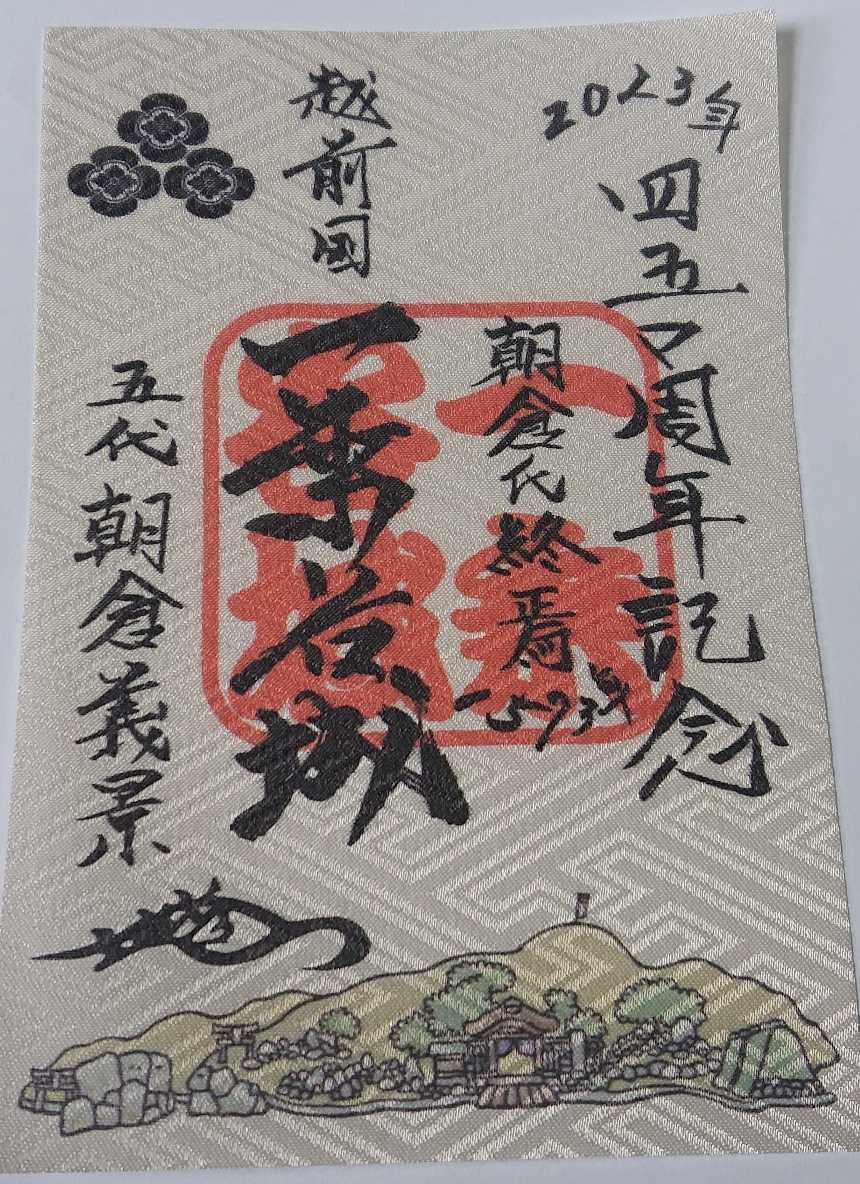 2023年
四五〇周年記念
朝倉氏終焉
1573年
越前国
一乗谷城
五代 朝倉義景
一乗
谷城